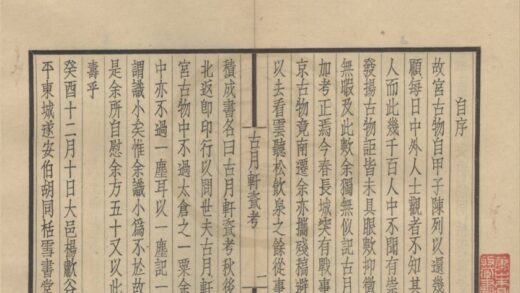 自序
故宮古物自甲子陳列以還幾
顧每日中外人士觀者不知其
人而此幾千百人中不聞有嵩
發揚古物詎皆未具眼歟抑徵
無暇及此歟余獨無似記古月
加考正焉今春長城突有戰事
京古物竟南遷余亦攜殘稿避
以去看雲聽松飲泉之餘從事
古月軒瓷考
一
積成書名曰古月軒瓷考秋後
北返即印行以問世夫古月軒
宮古物中不過太倉之一粟余
中亦不過一塵耳以一塵記一
謂識小矣惟余識小為不於故
是余所自慰余方五十又以此
壽乎
癸酉十二月十日大邑楊歗谷
平東城遂安伯胡同栝雪書堂